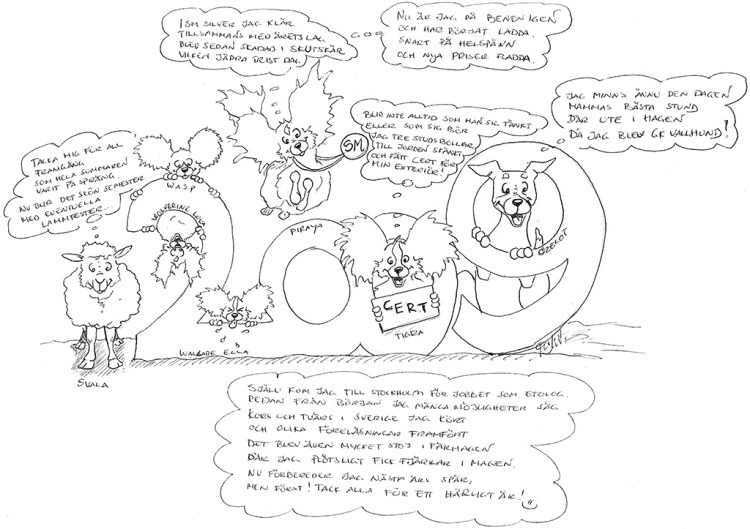 ISM SILVER JAG KLÄR
TILLSAMMANS MED ÅRETS LAG.
BLEV SEDAN SKADAD I SKUTSKÄR
VILKEN JÄDRA TRIST DAG.
NU ÄR JAG PÅ BENEN IGEN
OCH HAR BÖRJAT LADDA.
SNART PÅ HELSPÄNN
OCH NYA PRISER RÄDDA.
JAG MINNS ÄNNU DEN DAGEN
MAMMAS BÄSTA STUND
DÄR UTE I HAGEN
DÅ JAG BLEV GK VALLHUND!
BLIR INTE ALLTID SOM MAN SIG TÄNKT
ELLER SOM SIG BÖR
JAG TRE STUDSBOLLAR
TILL JORDEN SPÄNKT
OCH FÅTT CERT FÖR
MIN EXTERIÖR!
TACKA MIG FÖR ALL
FRAMGÅNG
SOM HELA SOMMAREN
VARIT PÅ SPRÅNG.
NU BLIR DET SKÖN SEMESTER
MED EVENTUELLA
LAMMTESTER...
SM
W.A.S.P
WOLVERINE
PIRAYA
OZELOT
CERT
TIGRA
WALLABE ELLA
SVALA
SJÄLV KOM JAG TILL STOCKHOLM FÖR JOBBET SOM ETOLOG.
REDAN FRÅN BÖRJAN JAG MÅNGA MÖJLIGHETER SÅG
KORS OCH TVÄRS I SVERIGE JAG KÖRT
OCH OLIKA FÖRELÄSNINGAR FRAMFÖRT
DET BLEV ÄVEN MYCKET STOJ I FÅRHAGEN
DÄR JAG PLÖTSLIGT FICK FJÄRILAR I MAGEN.
NU FÖRBEREDER JAG NÄSTA ÅRS SPÅR,
MEN FÖRST! TACK ALLA FÖR ETT HÄRLIGT ÅR!